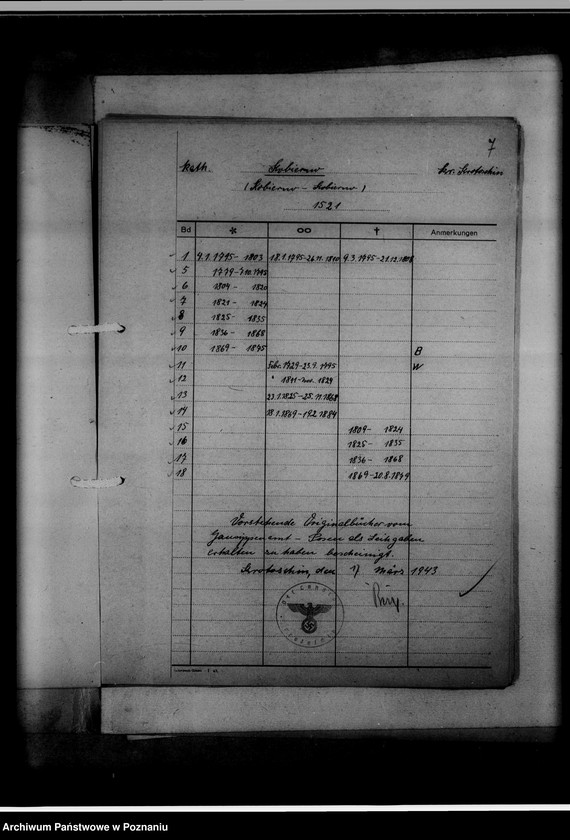 7
kath. Kobierno Kr. Krotoschin
(Kobierno - Kobierno)
1521
Bd * ∞ † Anmerkungen
1 9.1.1795- 1803 18.1.1795-26.11.1810 9.3.1795-21.12.1808
5 1779-7.10.1795
6 1804- 1820
7 1821- 1824
8 1825- 1835
9 1836- 1868
10 1869- 1875 B
11 Febr. 1729-23.9.1795 W
12 " 1811-nov. 1824
13 23.1.1825-25.11.1868
14 18.1.1869-19.2.1884
15 1809- 1824
16 1825- 1835
17 1836- 1868
18 1869-20.8.1879
Vorstehende Originalbücher vom
Gausippenamt - Posen als Leihgaben
erhalten zu haben bescheinigt.
Krotoschin, den 17 März 1943
Der Landrat
Archiwum Państwowe w Poznaniu